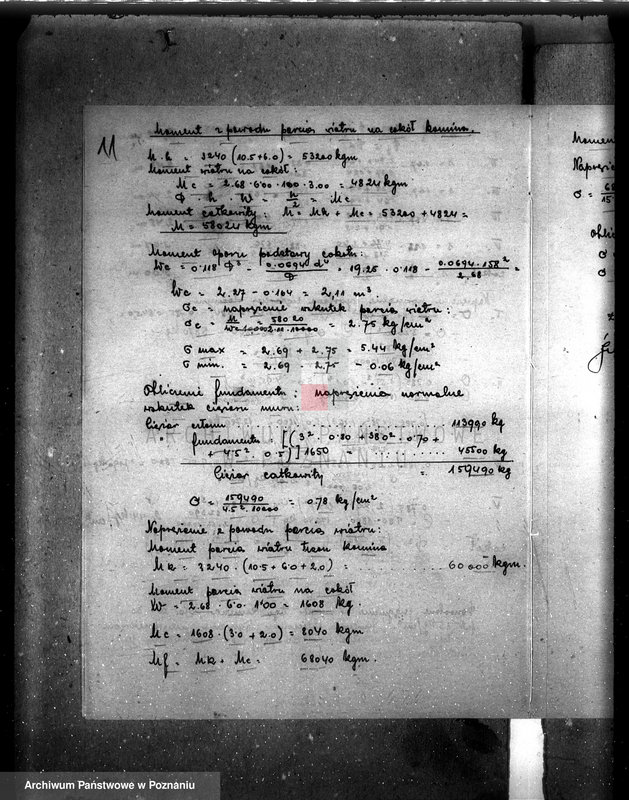 11
Moment z powodu parcia wiatru na cokół komina.
M.k. = 3240 (10.5+6.0) = 53200 kgm
Moment wiatru na cokół:
Mc = 2.68 · 6.00 · 100 · 3.00 = 4824 kgm
Φ · h · W · h/2 = Mc
Moment całkowity: M = Mk + Mc = 53200 + 4824 =
M = 58024 kgm
Moment oporu podstawy cokołu:
Wc = 0.118 Φ³ - 0.0694 d⁴/Φ = 19.25 · 0.118 - 0.0694 · 1.58²/2.68 =
Wc = 2.27 - 0.164 = 2,11 m³
σc = naprężenie wskutek parcia wiatru:
σc = M/Wc·10000 = 58020/2.11·10000 = 2.75 kg/cm²
σ max = 2.69 + 2.75 = 5.44 kg/cm²
σ min. = 2.69 - 2.75 - 0.06 kg/cm²
Obliczenie fundamentu: naprężenia normalne
wskutek ciężaru muru:
Ciężar 113990 kg
" fundamentu = [(3²· 0.80 + 3.80²· 0.70 +
+ 4.5²· 0.5)] 1650 = 45500 kg
Ciężar całkowity = 159490 kg
σ = 159490/4.5²·10000 = 0.78 kg/cm²
Naprężenie z powodu parcia wiatru:
Moment parcia wiatru trzon komina
Mk = 3240 · (10.5 + 6.0 + 2.0) = 60000 kgm.
Moment parcia wiatru na cokół
W = 2.68 · 6.0 · 100 = 1608 kg.
Mc = 1608 · (3.0 + 2.0) = 8040 kgm
Mf = Mk + Mc = 68040 kgm.
Momen
Napręże
σ = 68
15
Oblic
σ
σ
ARCHIWUM PAŃSTWOWE
W POZNANIU
Archiwum Państwowe w Poznaniu